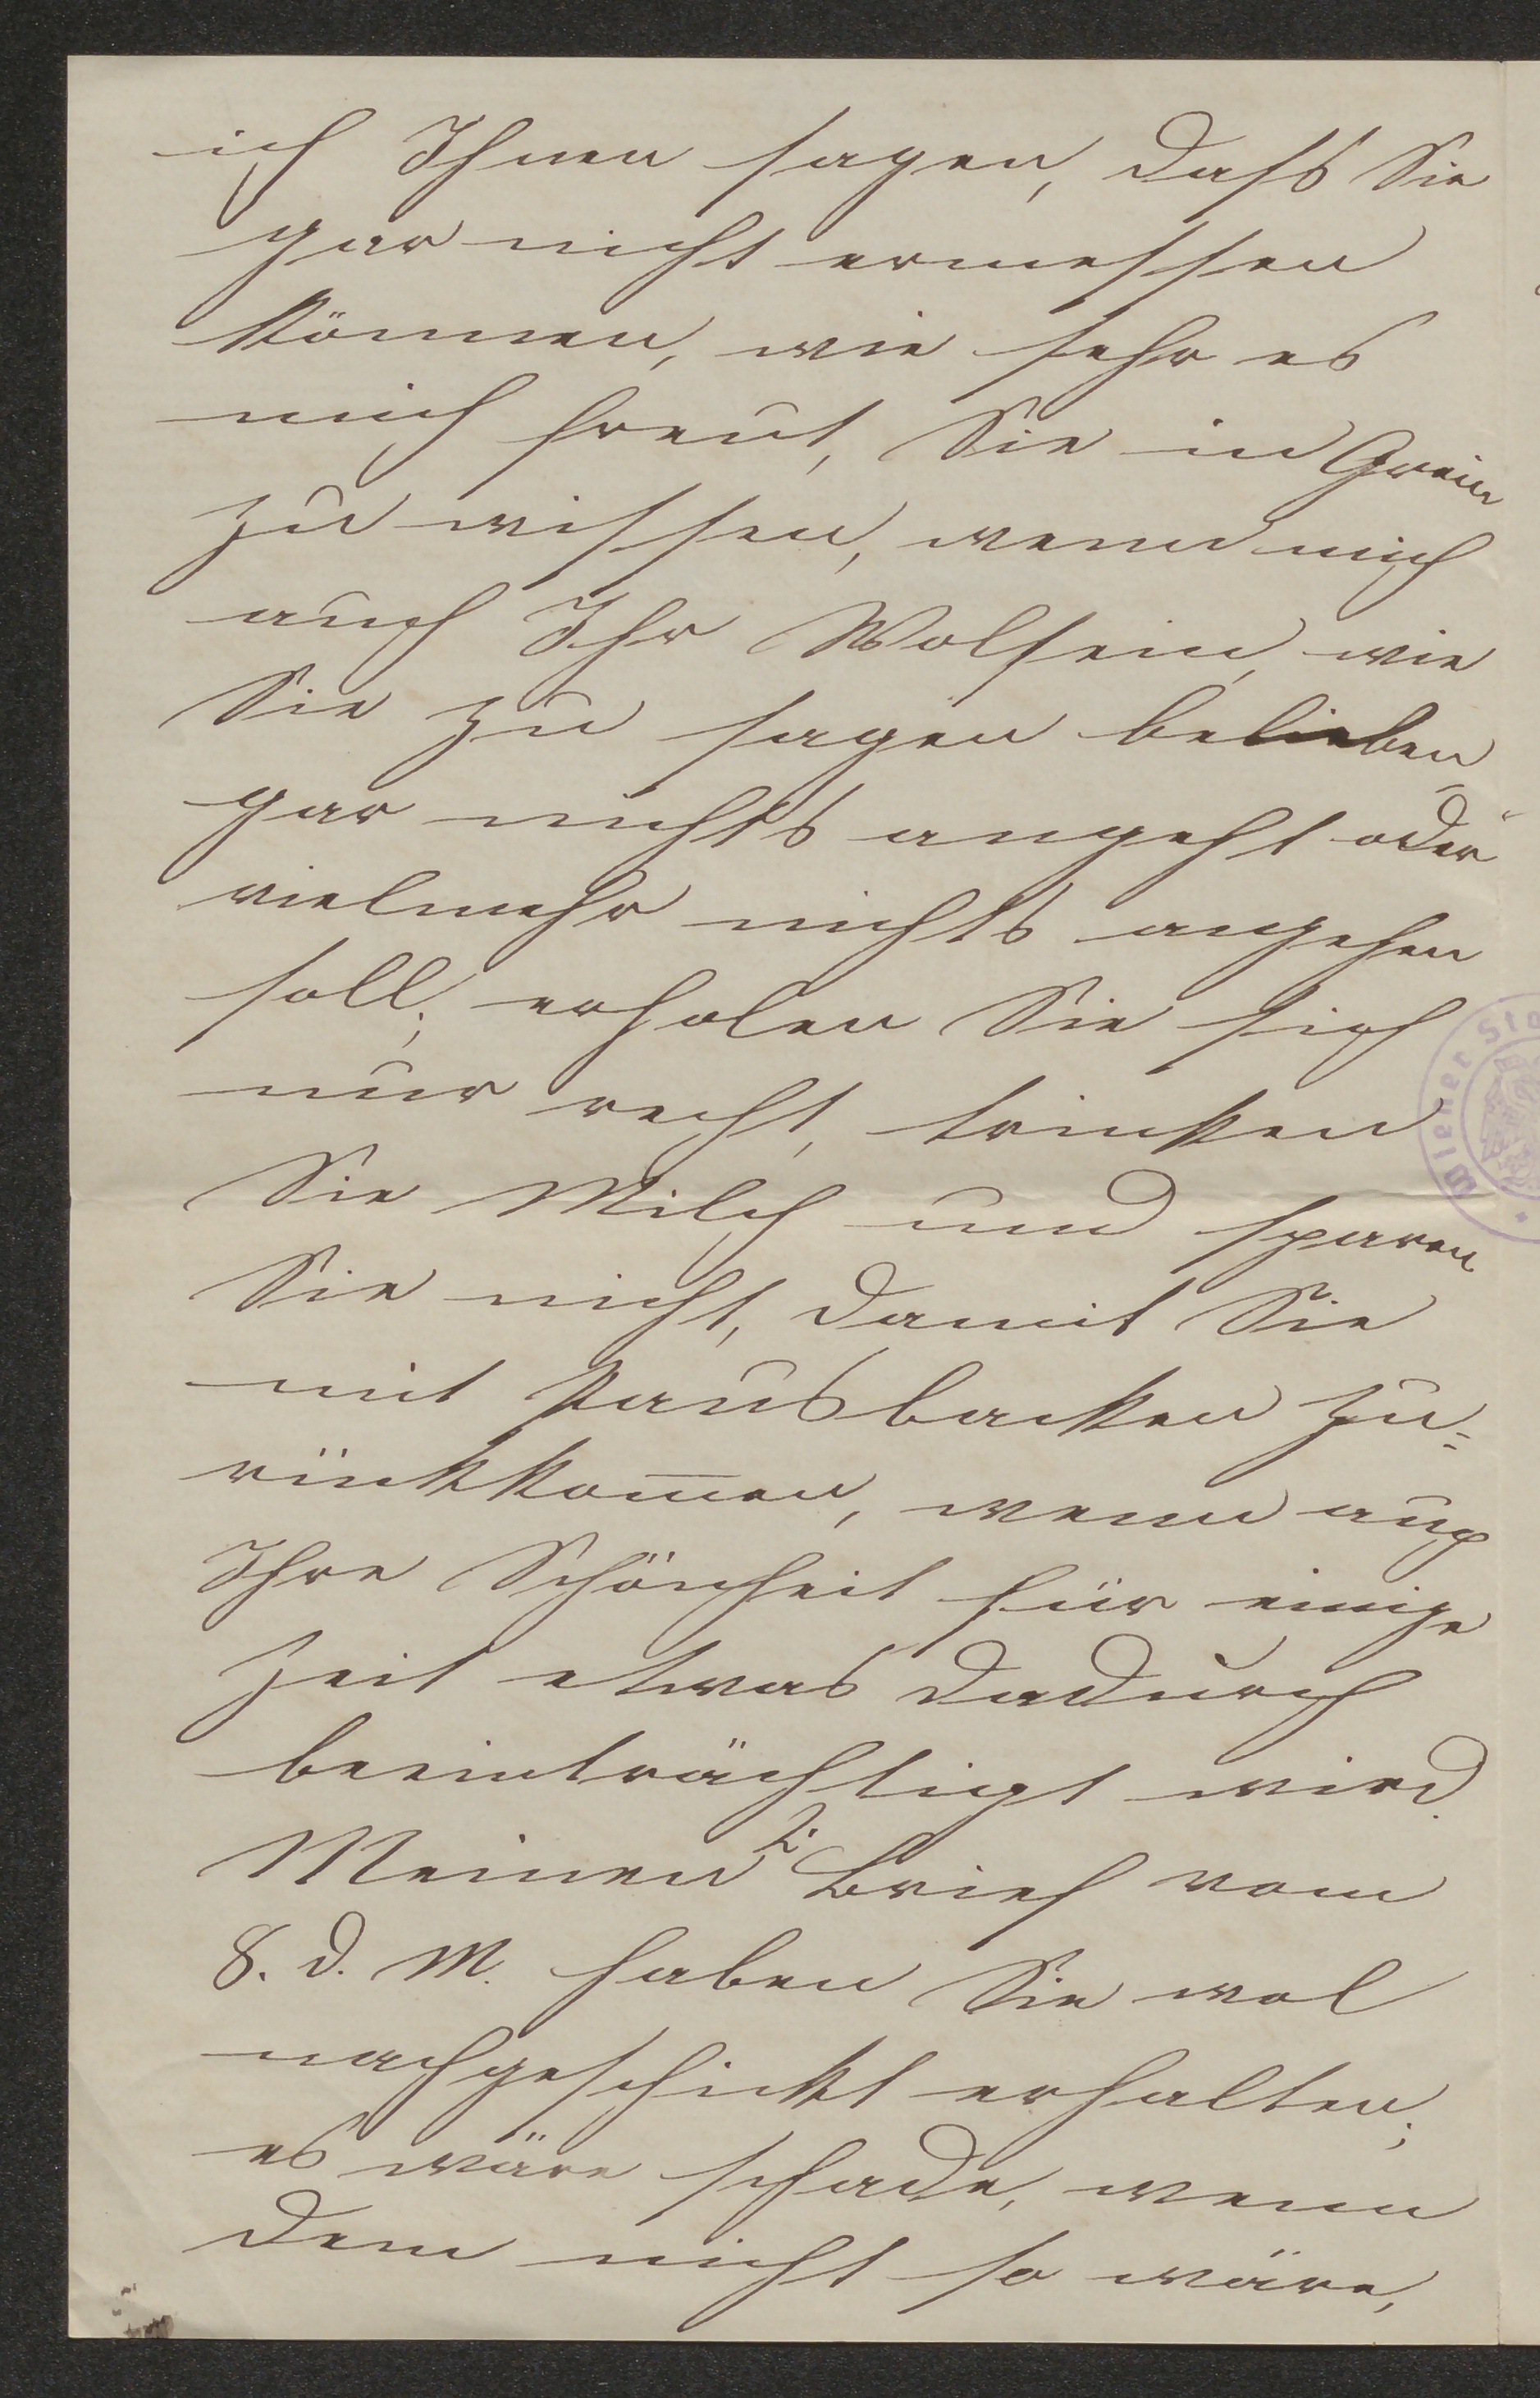 ich Ihnen sagen, dass Sie
gar nicht ermessen
können, wie sehr es
mich freut, Sie in Grein
zu wissen, wenn mich
auch Ihr Wolsein, wie
Sie zu sagen belieben
gar nichts angeht oder
vielmehr nichts angehen
soll; erholen Sie sich
nur recht, trinken
Sie Milch und sparen
Sie nicht, damit Sie
mit Pausbacken zu=
rückkom̄en, wenn auch
Ihre Schönheit für einige
Zeit etwas dadurch
beeinträchtigt wird.
Meinen 2. Brief vom
8. d. M. haben Sie wol
nachgeschickt erhalten;
es wäre schade, wenn
dem nicht so wäre,
Wiener Sta